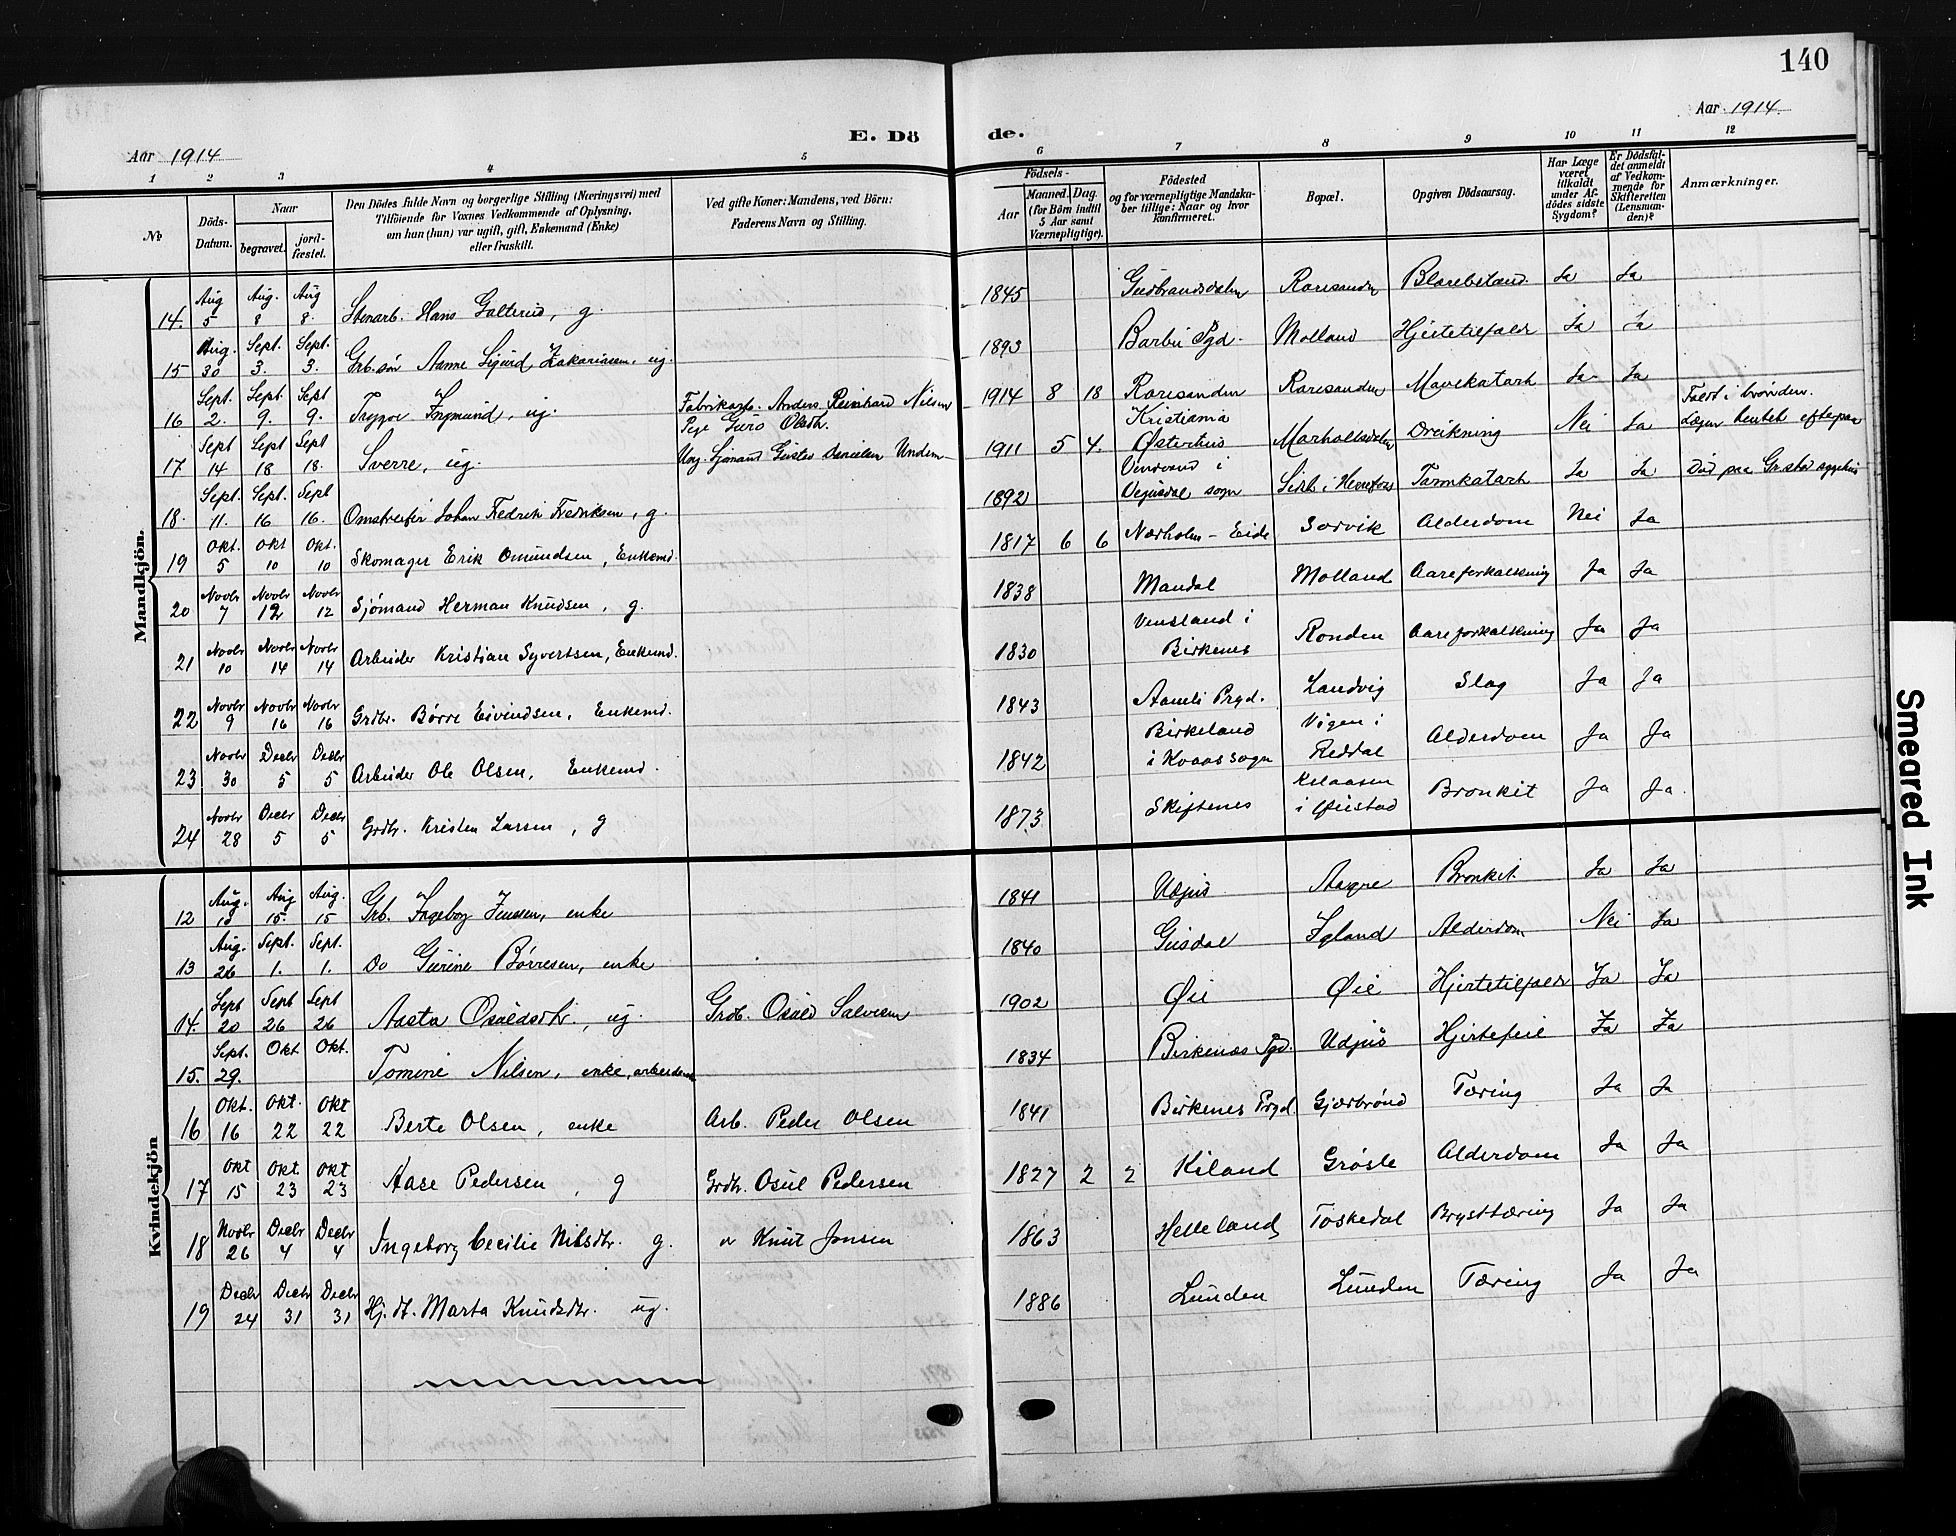 140
Aar 1914
Aar 1914
E. Dö de.
1 2 3 4 5 6 7 8 9 10 11 12
No
Döds-Datum.
Naar
begravet.
jord-fæstet.
Den Dödes fulde Navn og borgerlige Stilling (Næringsvei) med
Tilföiende for Voxnes Vedkommende af Oplysning,
om han (hun) var ugift, gift, Enkemand (Enke)
eller fraskilt.
Ved gifte Koner: Mandens, ved Börn:
Faderens Navn og Stilling.
Födsels-
Aar
Maaned. Dag.
(for Börn indtil
5 Aar samt
Værnepligtige).
Födested
og for værnepligtige Mandska-
ber tillige: Naar og hvor
konfirmeret.
Bopæl.
Opgiven Dödsaarsag.
Har Læge
været
tilkaldt
under Af-
dödes sidste
Sygdom?
Er Dödsfal-
det anmeldt
af Vedkom-
mende for
Skifteretten
(Lensman-
den)?
Anmærkninger.
Mandkjön.
14. Aug 5 Aug. 8 Aug 8. Stenarb. Hans Galterud, g. 1845 Gudbrandsdalen Roresanden Ja Ja
15 Aug. 30 Sept. 3. Sept. 3. Grb. søn Aanne Sigurd Zakariasen, ug. 1893 Barbu Pgd. Molland Hjertetilfælde Ja Ja
16 Sept. 2. Sept. 9. Sept 9. Trygve Ingmund, ug. Fabrikarb. Anders Reinhard Nilsen 1914 8 18 Roresanden Roresanden Mavekatarh Ja Ja
17 Sept 14 Sept 18 Sept 18. Sverre, ug. Pige Guro Olsdtr. Ung. Sjømand Gustav Danielsen 1911 5 4. Kristiania Østerhus Drukning Nei Ja Faldt i brønden. Lægen hentet efterpaa
18. Sept. 11. Sept. 16 Sept 16. Omstreifer Johan Fredrik Fredriksen, g. 1892 i Vegusdal sogn Tarmkatarh Ja Ja Død paa Gr.stad sygehus
19 Okt. 5 Okt 10 Okt. 10 Skomager Erik Omundsen, Enkemd. 1817 6 6 Nørholm - Eide Sørvik Alderdom Nei Ja
20 Novbr 7 Novbr 12 Novbr 12 Sjømand Herman Knudsen, g. 1838 Mandal Molland Aareforkalkning Ja Ja
21 Novbr 10 Novbr 14 Novbr 14 Arbeider Kristian Syvertsen, Enkemd. 1830 i Birkenes Ronden Aareforkalkning Ja Ja
22 Novbr 9 Novbr 16 Novbr 16 Grdbr. Børre Eivindsen, Enkemd. 1843 Aamli Prgd. Landvig Slag Ja Ja
23 Novbr 30 Decbr 5 Decbr 5 Arbeider Ole Olsen, Enkemd. 1842 Birkeland i Kvaas sogn Vigen i Reddal Alderdom Ja Ja
24 Novbr 28 Decbr 5 Decbr 5 Grdbr. Kristen Larsen, g 1873 Skiftenes i Øiestad Bronkit Ja Ja.
Kvindekjön
12 Aug. 10 Aug 15. Aug. 15 Grb. Ingeborg Jenssen, enke 1841 Udjus Bronkit Ja Ja
13 Aug. 26 Sept. 1. Sept. 1. Do Gurine Børresen, enke 1840 Gusdal Igland Alderdom Nei Ja
14. Sept 20 Sept 26 Sept 26 Aasta Osuldsdtr., ug. Grdb. Osuld Salvesen 1902 Øie Øie Hjertetilfælde Ja Ja
15. Sept. 29. Okt Okt. Tomine Nilsen, enke, 1834 Birkenes Pgd. Udjus Hjertefeil Ja Ja
16 Okt. 16 Okt. 22 Okt 22 Berte Olsen, enke Arb. Peder Olsen 1841 Birkenes Prgd Gjærbrønd Tæring Ja Ja
17 Okt 15 Okt. 23 Okt. 23 Aase Pedersen, g Grdbr. Osul Pedersen 1827 2 2 Kiland Grøsle Alderdom Ja Ja
18 Novbr 26 Decbr 4 Decbr 4 Ingeborg Cecilie Nilsdtr. g. " Knut Jonsen 1863 Helleland Toskedal Brysttæring Ja Ja
19 Decbr 24 Decbr 31 Decbr 31 Hj. dt. Marta Knudsdtr. ug. 1886 Lunden Lunden Tæring Ja Ja
Smeared Ink